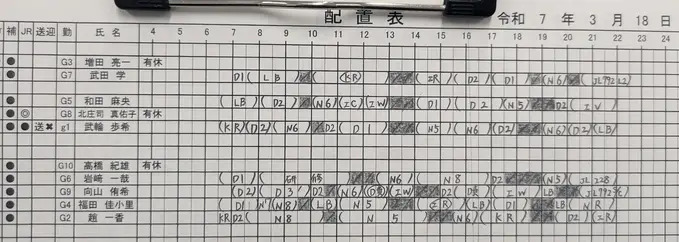 配置表 令和 7 年 3 月 18 日
補 JR 送迎 勤 氏 名 4 5 6 7 8 9 10 11 12 13 14 15 16 17 18 19 20 21 22 23 24
G3 増田 亮一 有休
G7 武田 学 D1 ( LB ) ( (KR) ) ( IR ) ( D2 ) ( D1 N6 ( JL992 L2 )
G5 和田 麻央 ( LB ) ( D2 (N6) (IC) (IW) ( D1 ) ( D2 ) ( N5 ) D2 ( IV )
G8 北庄司 真佑子 有休
送✖ g1 武輪 歩希 (KR) (D2) ( N6 ) D2 ( D1 ) ( N5 ) ( N6 ) ( D2 ) (N6) (D2) (LB)
G10 高橋 紀雄 有休
G6 岩﨑 一哉 ( D1 ) ( 研修 ) ( N6 ) ( N8 ) D2 (N5) ( JL228 )
G9 向山 侑希 (D2) ( D3 ) D2 (N6) ( IW ) D2 ( IW ) LB ( JL992
G4 福田 佳小里 ( D1 ) N7 (N8) (LB) ( N5 ) ( LB ) ( D1 ) LB ( NR )
G2 趙 一香 KR D2 ( N8 ) ( N 5 ) (N6) ( KR ) ( D2 ) ( IR )